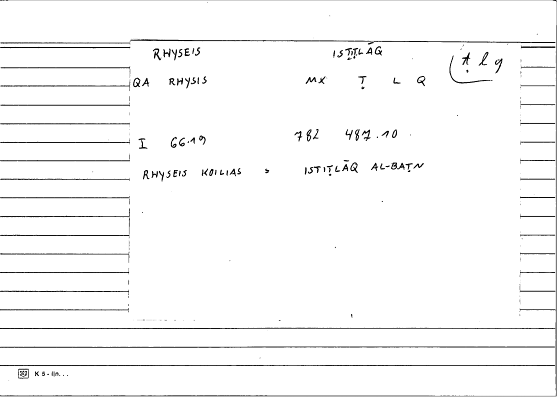 RHYSEIS ISTIṬLĀQ ṭlq
QA RHYSIS MX Ṭ L Q
I 66.19 782 487.10
RHYSEIS KOILIAS = ISTIṬLĀQ AL-BAṬN
K 5 - lin. . .